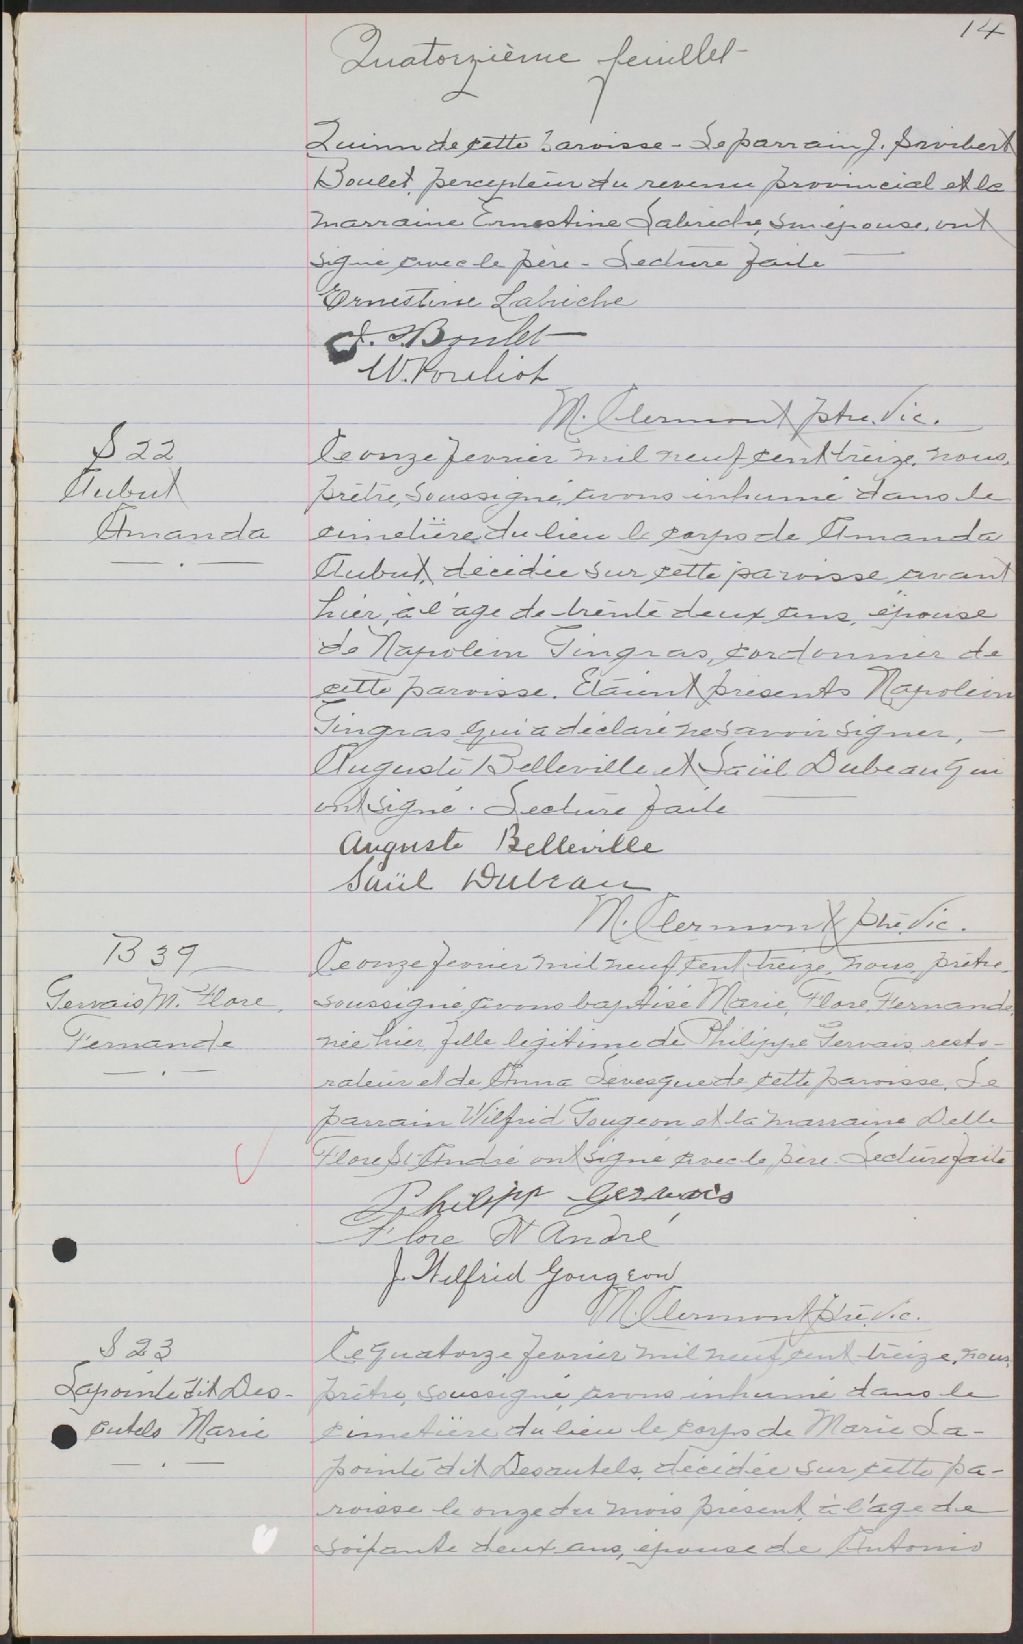 14
Quatorzième feuillet
Quinn de cette paroisse - Le parrain J.
Boulet, percepteur du revenu provincial et la
marraine Ernestine Labrèche, son épouse, ont
signé avec le père - Lecture faite
Ernestine Labrèche
J. S. Boulet
W. Pouliot
M. Clermont ptre. Vic.
S 22
Aubut
Amanda
Le onze fevrier mil neuf cent treize, nous,
prêtre, soussigné, avons inhumé dans le
cimetière du lieu le corps de Amanda
Aubut, décédée sur cette paroisse, avant
hier, à l'age de trente deux ans, épouse
de Napoléon Gingras, cordonnier de
cette paroisse. Etaient présents Napoléon
Gingras qui a déclaré ne savoir signer, -
Auguste Belleville et Saül Dubeau qui
ont signé. Lecture faite
Auguste Belleville
Saül Dubeau
M. Clermont ptre. Vic.
B 39
Gervais M. Flore
Fernande
Le onze fevrier mil neuf cent treize, nous, prêtre,
soussigné, avons baptisé Marie, Flore, Fernande,
née hier, fille légitime de Philippe Gervais, resto-
rateur et de Anna Levesque de cette paroisse. Le
parrain Wilfrid Gougeon et la marraine Delle
Flore St André ont signé avec le père. Lecture faite
Philipp Gervais
Flore St André
J. Wilfrid Gougeon
M. Clermont ptre. Vic.
S 23
Lapointe dit Des-
autels Marie
Le quatorze fevrier mil neuf cent treize, nous,
prêtre, soussigné, avons inhumé dans le
cimetière du lieu le corps de Marie La-
pointe dit Desautels, décédée sur cette pa-
roisse le onze du mois présent, à l'age de
soixante deux ans, épouse de Antonio